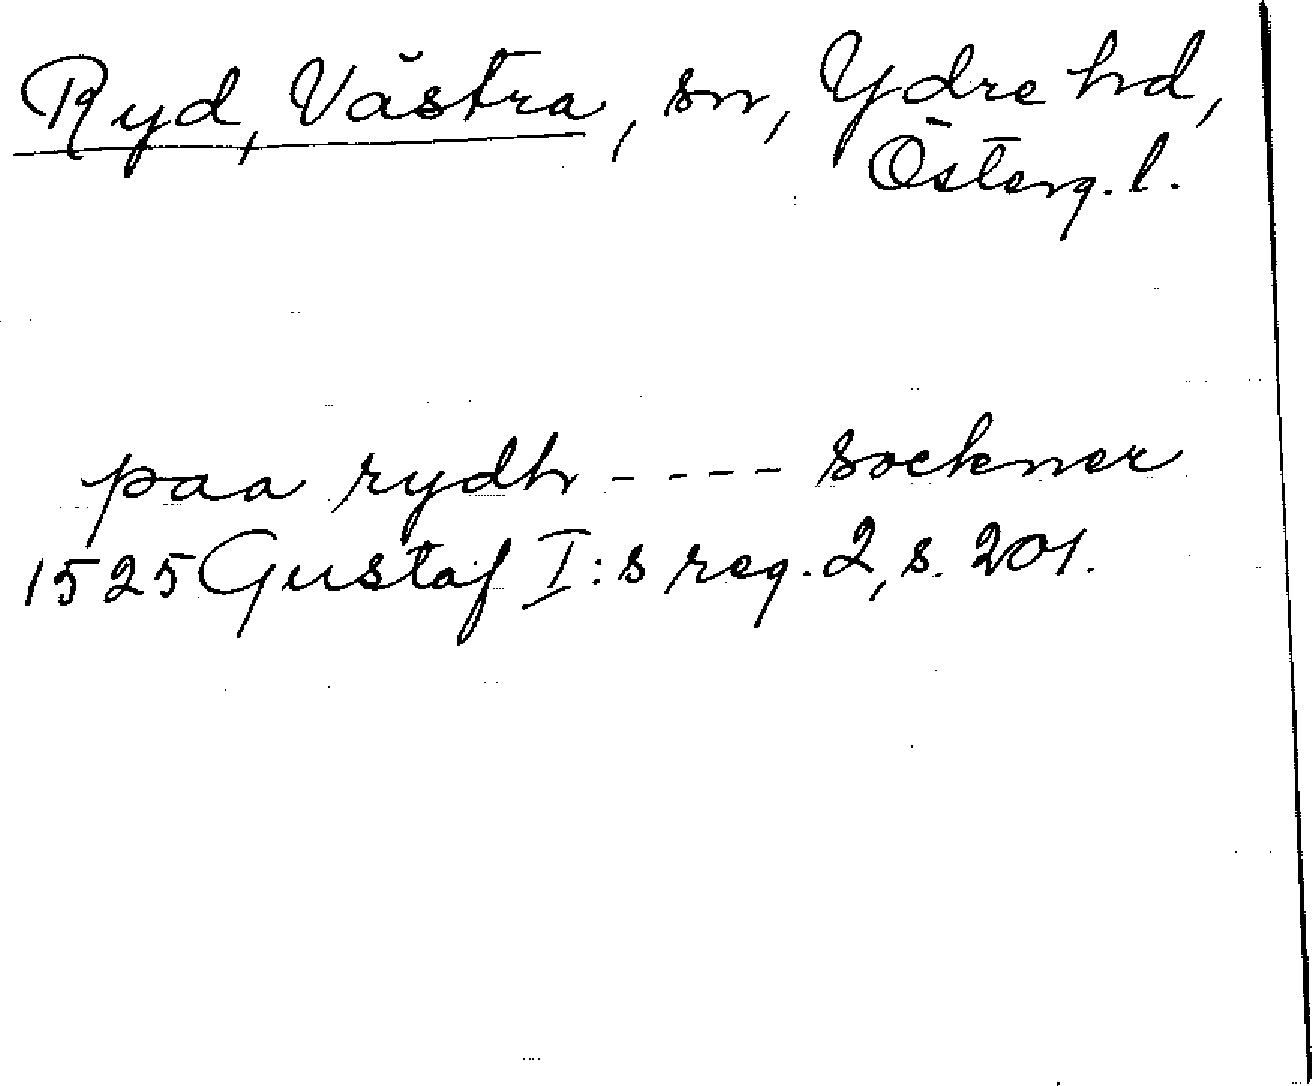 Ryd, Västra, sn, Ydre hd,
Österg. l.
paa rydh - - - - sockner
1525 Gustaf I:s reg. 2, s. 201.